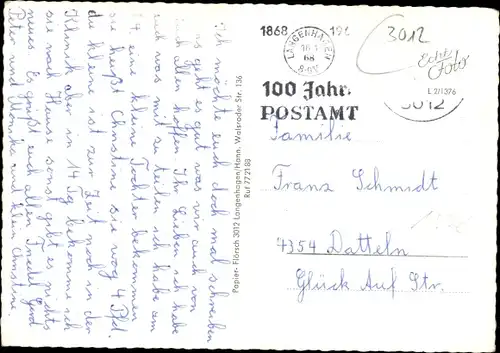 Ich möchte euch doch mal schreiben
uns geht es gut was wir auch von
euch allen hoffen Ihr Lieben ich habe
euch was mit zu teilen ich habe am
eine kleine Tochter bekommen
sie heißt Christine sie wog 4 Pfd.
die kleine ist zur Zeit noch in der
Klinik aber in 14 Tag bekomme ich
sie nach Hause sonst gibt es nichts
neues. Es grüßt euch alle Friedel Gerd
Peter und Monika und klein Christine.
Papier-Flörsch 3012 Langenhagen/Hann. Walsroder Str. 136
Ruf 77 21 88
1868 196
LANGENHAGEN
68
100 Jahre
POSTAMT
3012
Echte Foto
L 2/1376
3012
Familie
Franz Schmidt
4354 Datteln
Glück Auf Str.